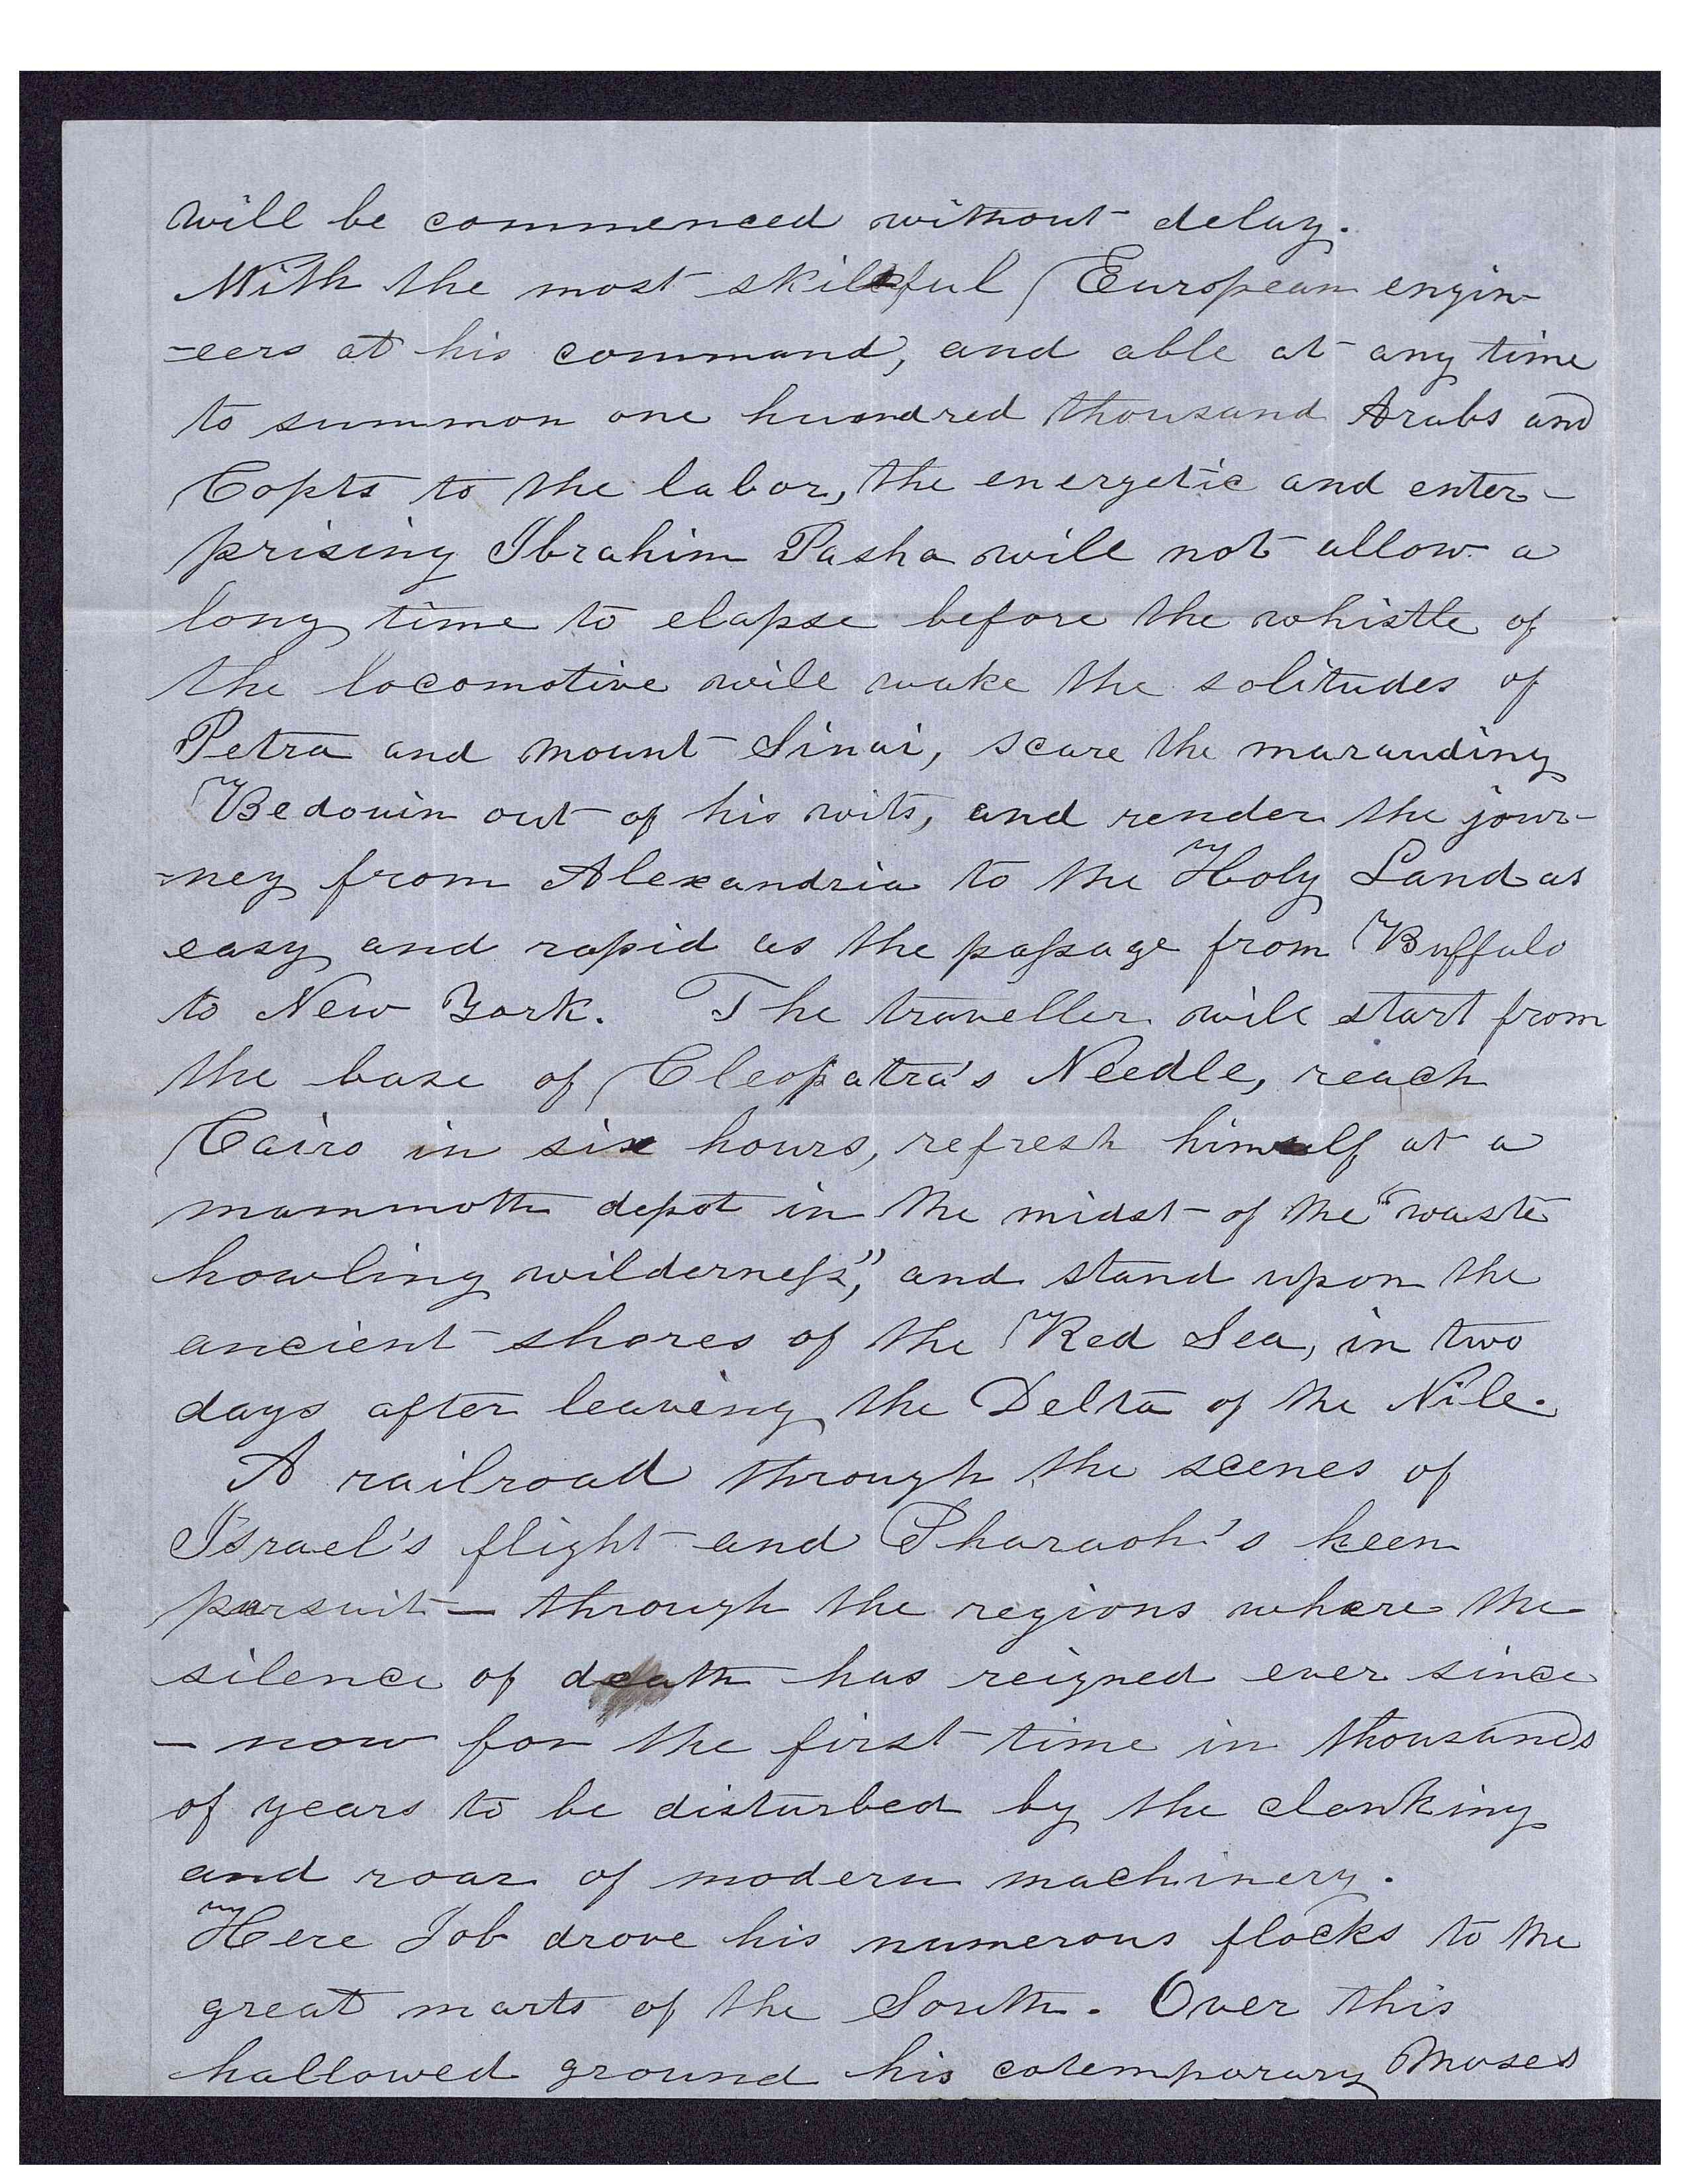 will be commenced without delay.
With the most skillful European engin-
-eers at his command, and able at any time
to summon one hundred thousand Arabs and
Copts to the labor, the energetic and enter-
prising Ibrahim Pasha will not allow a
long time to elapse before the whistle of
the locomotive will wake the solitudes of
Petra and Mount Sinai, scare the marauding
Bedouin out of his wits, and render the jour-
-ney from Alexandria to the Holy Land as
easy and rapid as the passage from Buffalo
to New York. The traveller will start from
the base of Cleopatra's Needle, reach
Cairo in six hours, refresh himself at a
mammoth depot in the midst of the "waste
howling wilderness," and stand upon the
ancient shores of the Red Sea, in two
days after leaving the Delta of the Nile.
A railroad through the scenes of
Israel's flight and Pharaoh's keen
pursuit — through the regions where the
silence of death has reigned ever since
— now for the first time in thousands
of years to be disturbed by the clanking
and roar of modern machinery.
Here Job drove his numerous flocks to the
great marts of the South. Over this
hallowed ground his cotemporary Moses